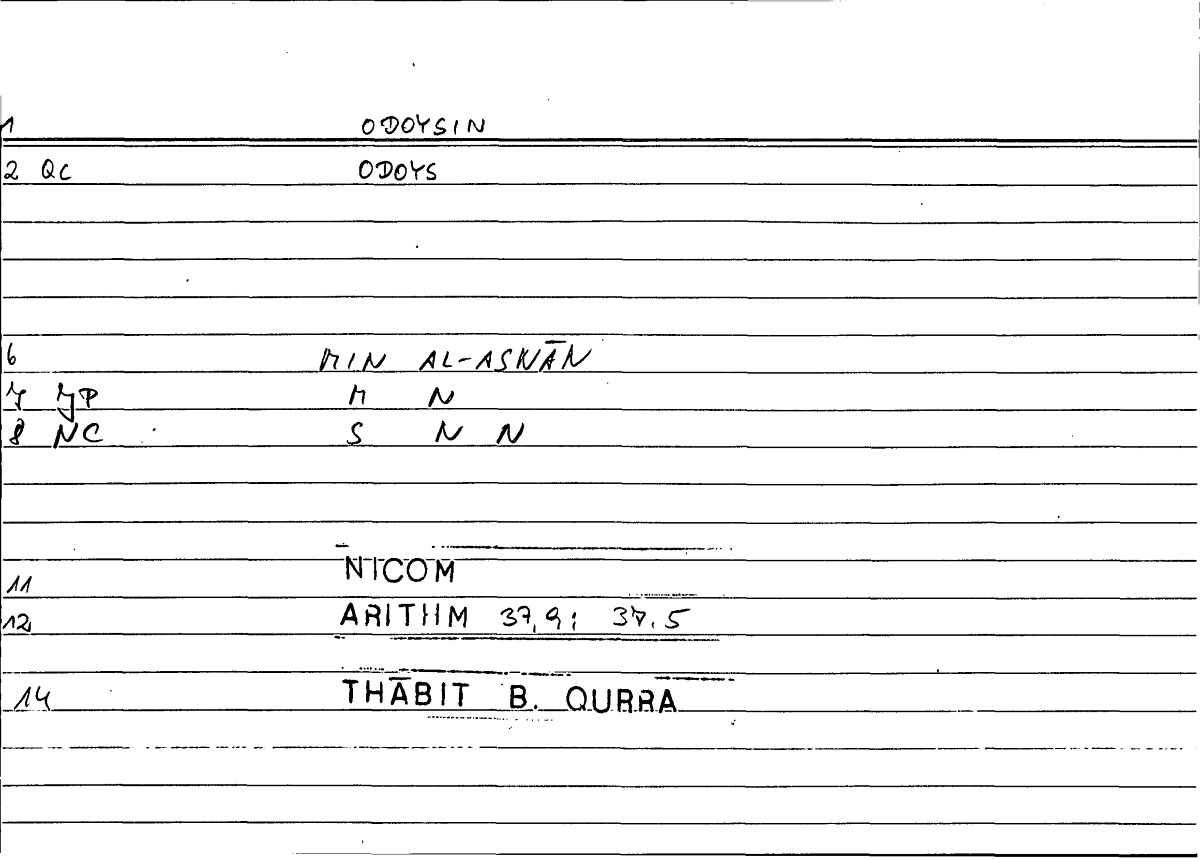 1 ODOYSIN
2 QC ODOYS
6 MIN AL-ASNĀN
7 JP M N
8 NC S N N
11 NICOM
12 ARITHM 37,9; 37.5
14 THĀBIT B. QURRA